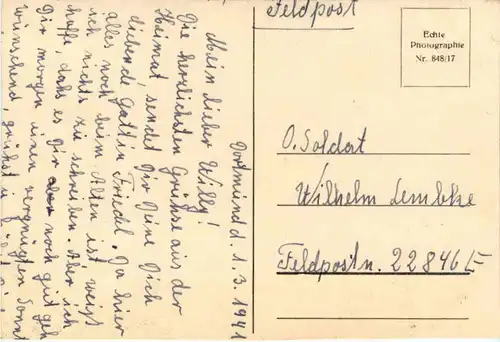 Dortmund d. 1. 3. 1941
Mein lieber Willy!
Die herzlichsten Grühse aus der
Heimat, sendet Dir Deine Dich
liebende Gattin Friedel. Da hier
alles noch beim Alten ist, weiß
ich nichts zu schreiben. Aber ich
hoffe, dahs es Dir noch gut geh
Dir morgen einen vergnügten Sonnt
wünschend, grühst u.
Feldpost
Echte
Photographie
Nr. 848/17
O. Soldat
Wilhelm Lembke
Feldpostn. 22846 E